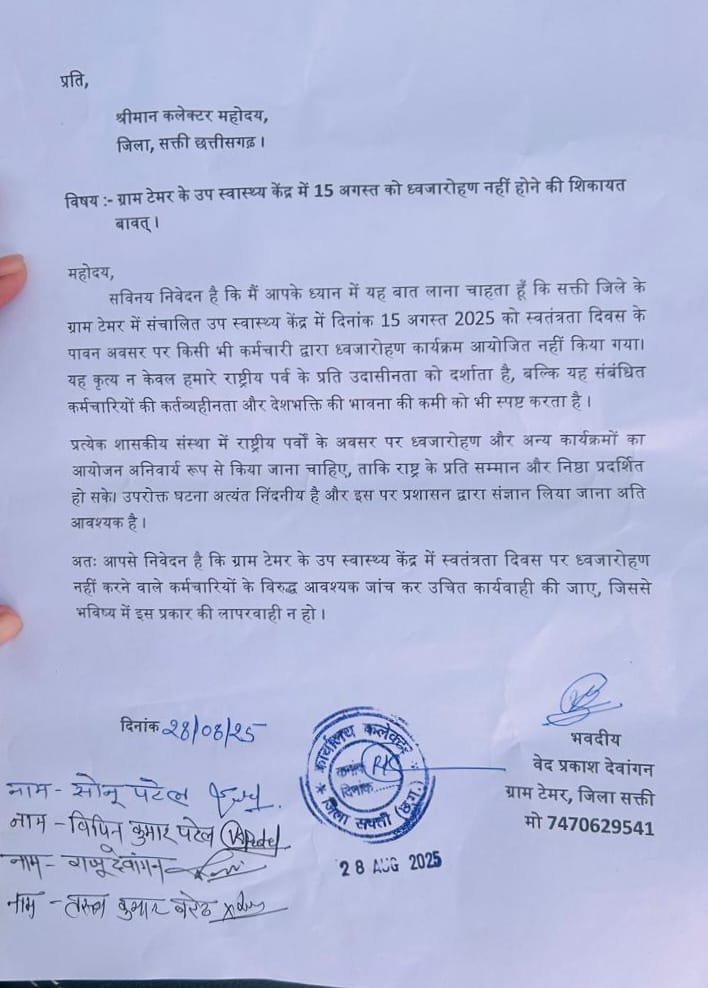 प्रति,
श्रीमान कलेक्टर महोदय,
जिला, सक्ती छत्तीसगढ़।
विषय :- ग्राम टेमर के उप स्वास्थ्य केंद्र में 15 अगस्त को ध्वजारोहण नहीं होने की शिकायत
बावत्।
महोदय,
सविनय निवेदन है कि मैं आपके ध्यान में यह बात लाना चाहता हूँ कि सक्ती जिले के
ग्राम टेमर में संचालित उप स्वास्थ्य केंद्र में दिनांक 15 अगस्त 2025 को स्वतंत्रता दिवस के
पावन अवसर पर किसी भी कर्मचारी द्वारा ध्वजारोहण कार्यक्रम आयोजित नहीं किया गया।
यह कृत्य न केवल हमारे राष्ट्रीय पर्व के प्रति उदासीनता को दर्शाता है, बल्कि यह संबंधित
कर्मचारियों की कर्तव्यहीनता और देशभक्ति की भावना की कमी को भी स्पष्ट करता है।
प्रत्येक शासकीय संस्था में राष्ट्रीय पर्वों के अवसर पर ध्वजारोहण और अन्य कार्यक्रमों का
आयोजन अनिवार्य रूप से किया जाना चाहिए, ताकि राष्ट्र के प्रति सम्मान और निष्ठा प्रदर्शित
हो सके। उपरोक्त घटना अत्यंत निंदनीय है और इस पर प्रशासन द्वारा संज्ञान लिया जाना अति
आवश्यक है।
अतः आपसे निवेदन है कि ग्राम टेमर के उप स्वास्थ्य केंद्र में स्वतंत्रता दिवस पर ध्वजारोहण
नहीं करने वाले कर्मचारियों के विरुद्ध आवश्यक जांच कर उचित कार्यवाही की जाए, जिससे
भविष्य में इस प्रकार की लापरवाही न हो।
दिनांक 28/08/25
भवदीय
वेद प्रकाश देवांगन
ग्राम टेमर, जिला सक्ती
मो 7470629541
कार्यालय कलेक्टर
दिनांक......
जिला सक्ती (छ.ग.)
28 AUG 2025
नाम - सोनू पटेल
नाम - विपिन कुमार पटेल
नाम - राजू देवांगन
नाम - कुमार